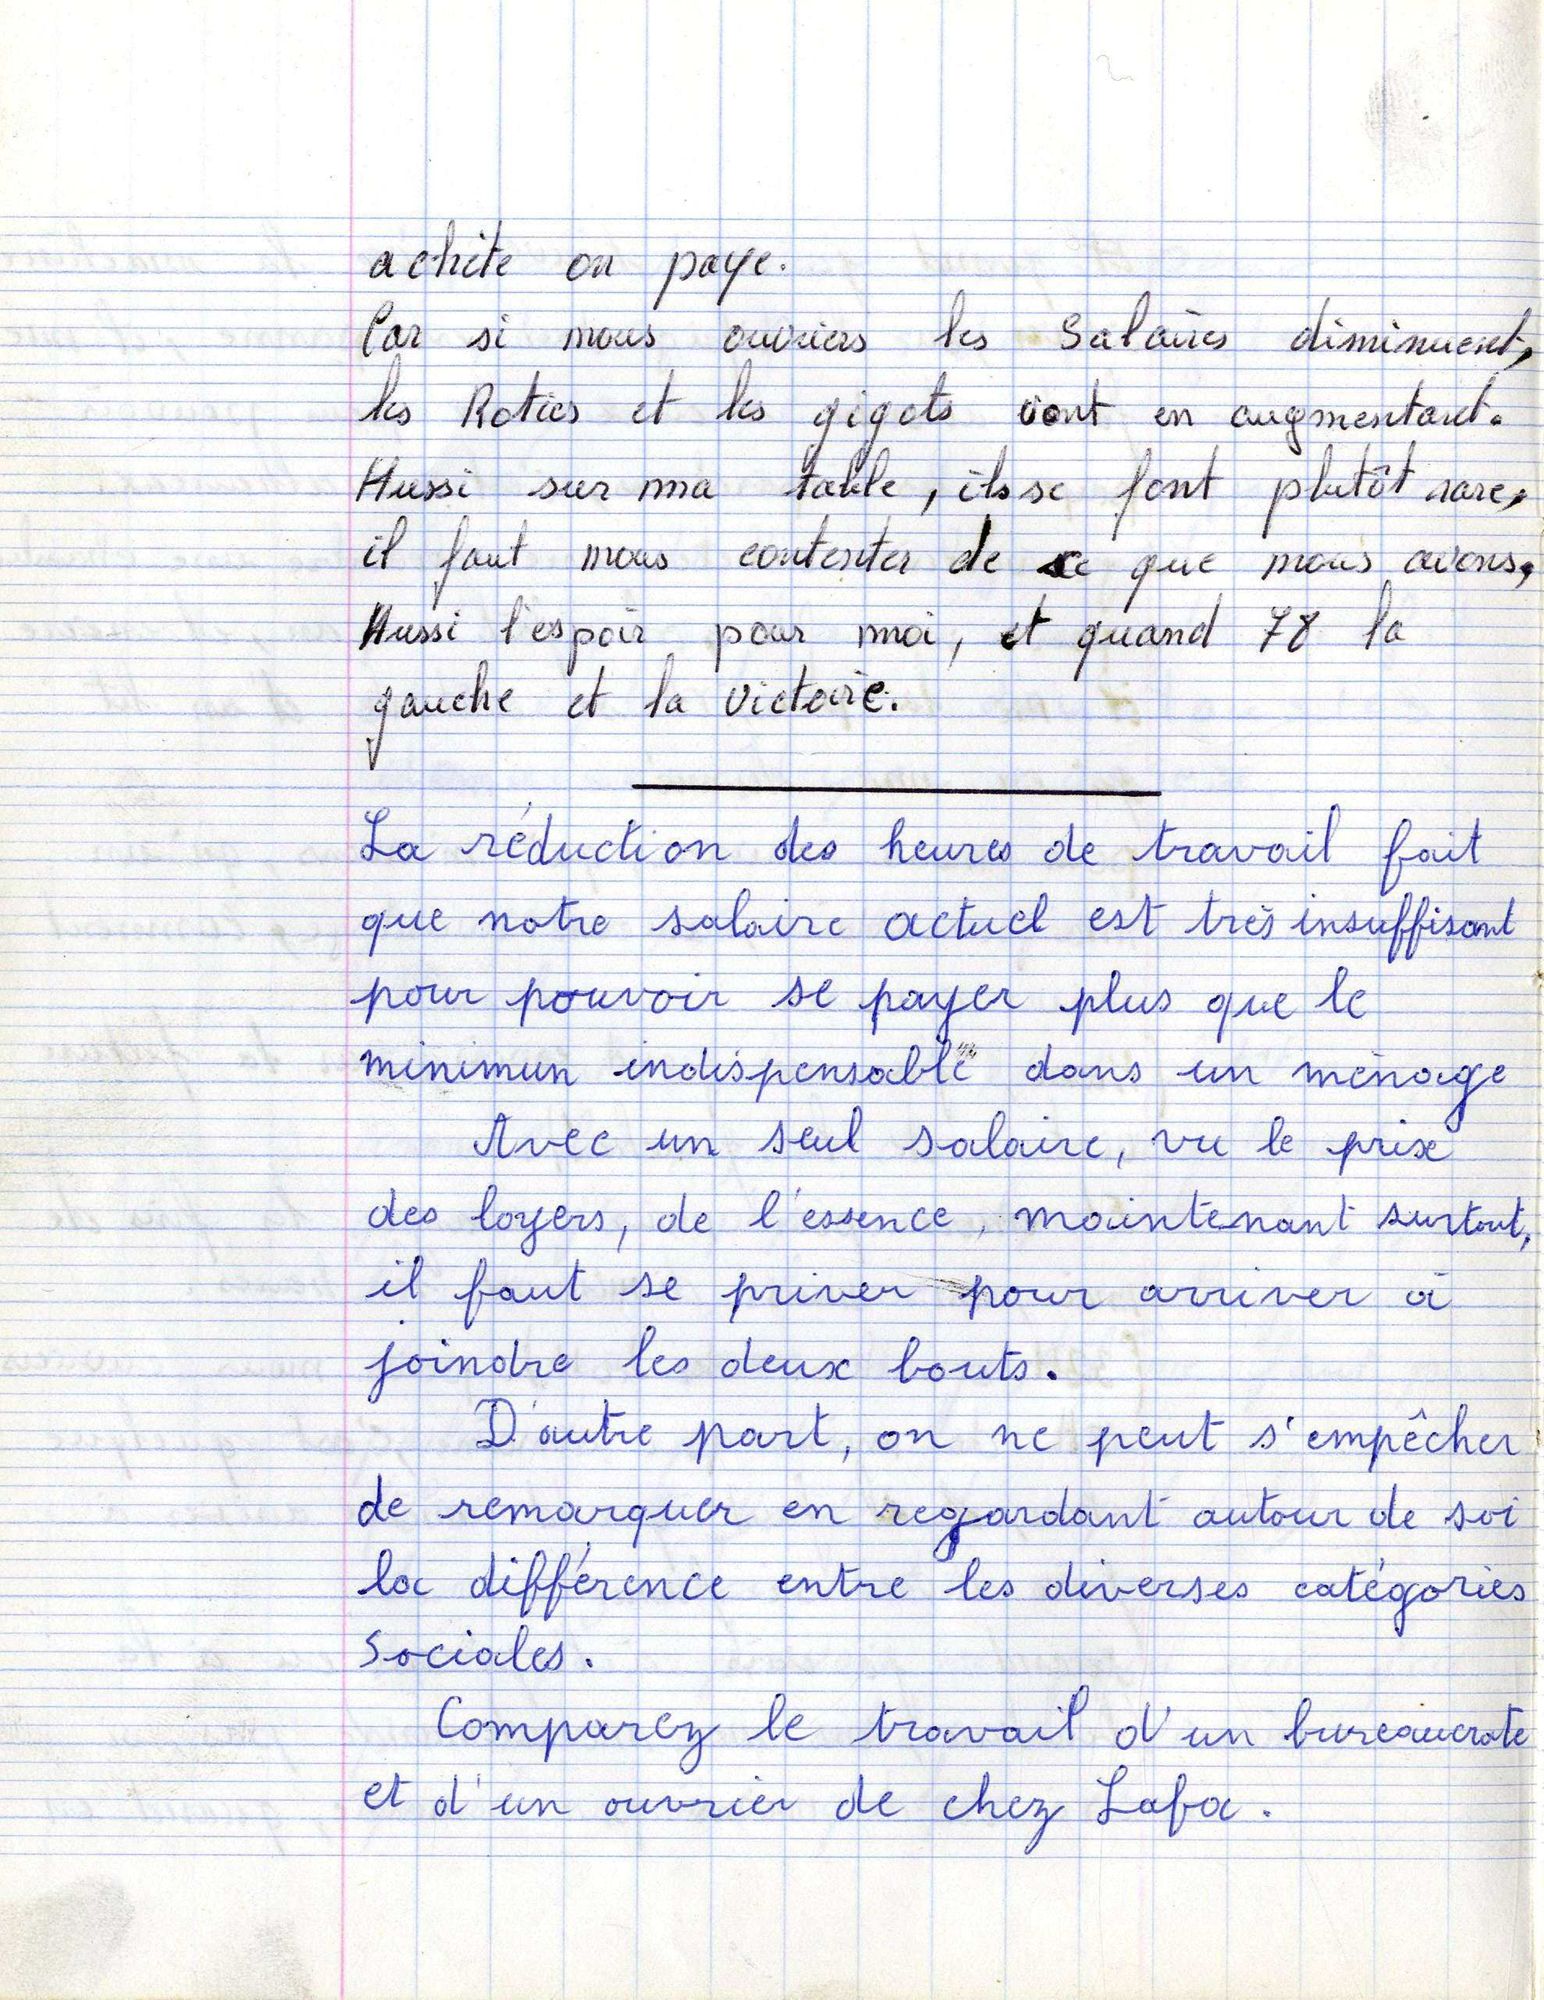 achète on paye.
Car si nous ouvriers les Salaires diminuent,
les Roties et les gigots vont en augmentant.
Aussi sur ma table, ils se font plutôt rare,
il faut nous contenter de ce que nous avons,
Aussi l'espoir pour moi, et quand 78 la
gauche et la victoire.
La réduction des heures de travail fait
que notre salaire actuel est très insuffisant
pour pouvoir se payer plus que le
minimun indispensable dans un ménage
Avec un seul salaire, vu le prix
des loyers, de l'essence, maintenant surtout,
il faut se priver pour arriver à
joindre les deux bouts.
D'autre part, on ne peut s'empêcher
de remarquer en regardant autour de soi
la différence entre les diverses catégories
Sociales.
Comparez le travail d'un bureaucrate
et d'un ouvrier de chez Lafa.